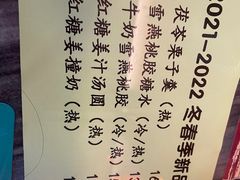 2021-2022 冬春季新品
茯苓栗子羹（热）
雪燕桃胶糖水（冷/热）
牛奶雪燕桃胶（冷/热）
红糖姜汁汤圆（热）
红糖姜撞奶（热）